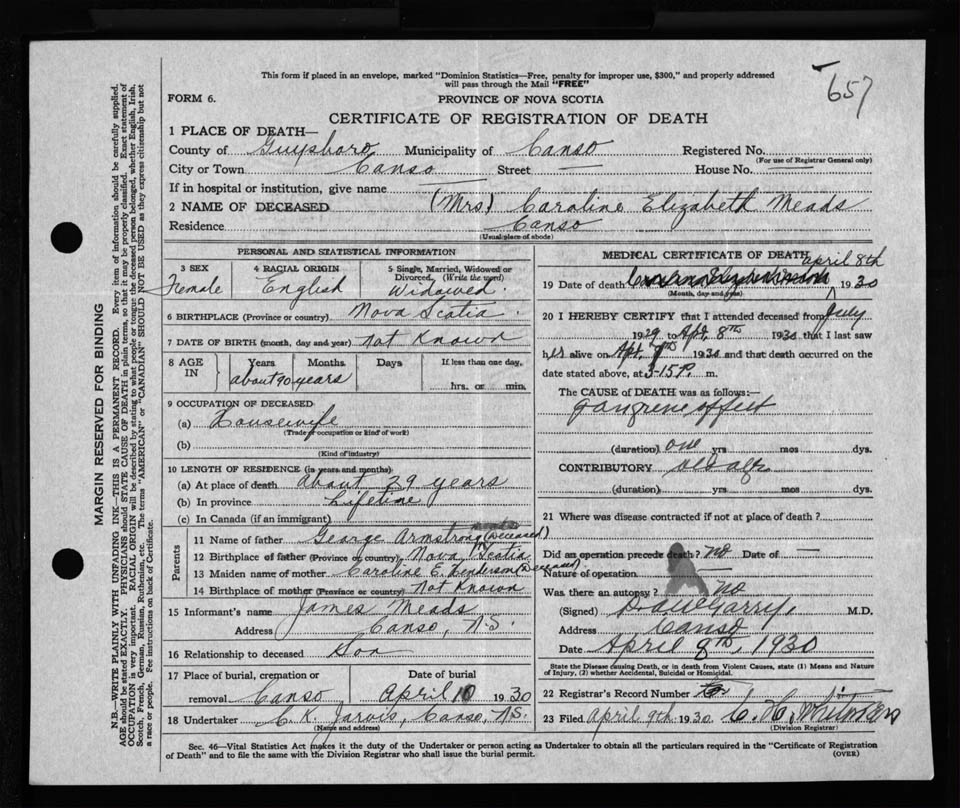 This form if placed in an envelope, marked "Dominion Statistics—Free, penalty for improper use, $300," and properly addressed
will pass through the Mail "FREE"
657
FORM 6.
PROVINCE OF NOVA SCOTIA
CERTIFICATE OF REGISTRATION OF DEATH
1 PLACE OF DEATH—
County of Guysboro Municipality of Canso Registered No.
(For use of Registrar General only)
City or Town Canso Street — House No. —
If in hospital or institution, give name —
2 NAME OF DECEASED (Mrs) Caroline Elizabeth Meads
Residence Canso
(Usual place of abode)
PERSONAL AND STATISTICAL INFORMATION
3 SEX Female
4 RACIAL ORIGIN English
5 Single, Married, Widowed or Divorced. (Write the word) Widowed.
6 BIRTHPLACE (Province or country) Nova Scotia.
7 DATE OF BIRTH (month, day and year) Not Known
8 AGE IN Years Months Days If less than one day,
about 90 years hrs. or min.
9 OCCUPATION OF DECEASED
(a) Housewife
(Trade or occupation or kind of work)
(b)
(Kind of industry)
10 LENGTH OF RESIDENCE (in years and months)
(a) At place of death About 29 years
(b) In province Lifetime
(c) In Canada (if an immigrant)
Parents
11 Name of father George Armstrong (Deceased)
12 Birthplace of father (Province or country) Nova Scotia
13 Maiden name of mother Caroline E. Henderson (Deceased)
14 Birthplace of mother (Province or country) Not Known
15 Informant's name James Meads
Address Canso, N.S.
16 Relationship to deceased Son
17 Place of burial, cremation or Date of burial
removal Canso April 10 1930
18 Undertaker C. K. Jarvis, Canso, N.S.
(Name and address)
MEDICAL CERTIFICATE OF DEATH
April 8th
19 Date of death 1930
(Month, day and year)
20 I HEREBY CERTIFY that I attended deceased from July
1929 to Apt. 8th 1930 that I last saw
her alive on Apt. 7th 1930 and that death occurred on
date stated above, at 3-15 P. m.
The CAUSE OF DEATH was as follows:
gangrene of feet
(duration) one yrs mos dys.
CONTRIBUTORY old age
(duration) yrs mos dys.
21 Where was disease contracted if not at place of death?
Did an operation precede death? no Date of —
Nature of operation —
Was there an autopsy? no
(Signed) M.D.
Address Canso
Date April 8th, 1930
State the Disease causing Death, or in death from Violent Causes, state (1) Means and Nature
of Injury, (2) whether Accidental, Suicidal or Homicidal.
22 Registrar's Record Number
23 Filed April 9th 1930 C. H.
(Division Registrar)
Sec. 46—Vital Statistics Act makes it the duty of the Undertaker or person acting as Undertaker to obtain all the particulars required in the "Certificate of Registration
of Death" and to file the same with the Division Registrar who shall issue the burial permit.
(OVER)
MARGIN RESERVED FOR BINDING
N.B.—WRITE PLAINLY WITH UNFADING INK—THIS IS A PERMANENT RECORD. Every item of information should be carefully supplied.
AGE should be stated EXACTLY. PHYSICIANS should STATE CAUSE OF DEATH in plain terms, so that it may be properly classified. Exact statement of
OCCUPATION is very important. RACIAL ORIGIN will be described by stating to what people or tongue the deceased person belonged, whether English, Irish,
Scotch, French, German, Russian, Ruthenian, etc. The terms "AMERICAN" or "CANADIAN" SHOULD NOT BE USED as they express citizenship but not
a race or people. See instructions on back of Certificate.